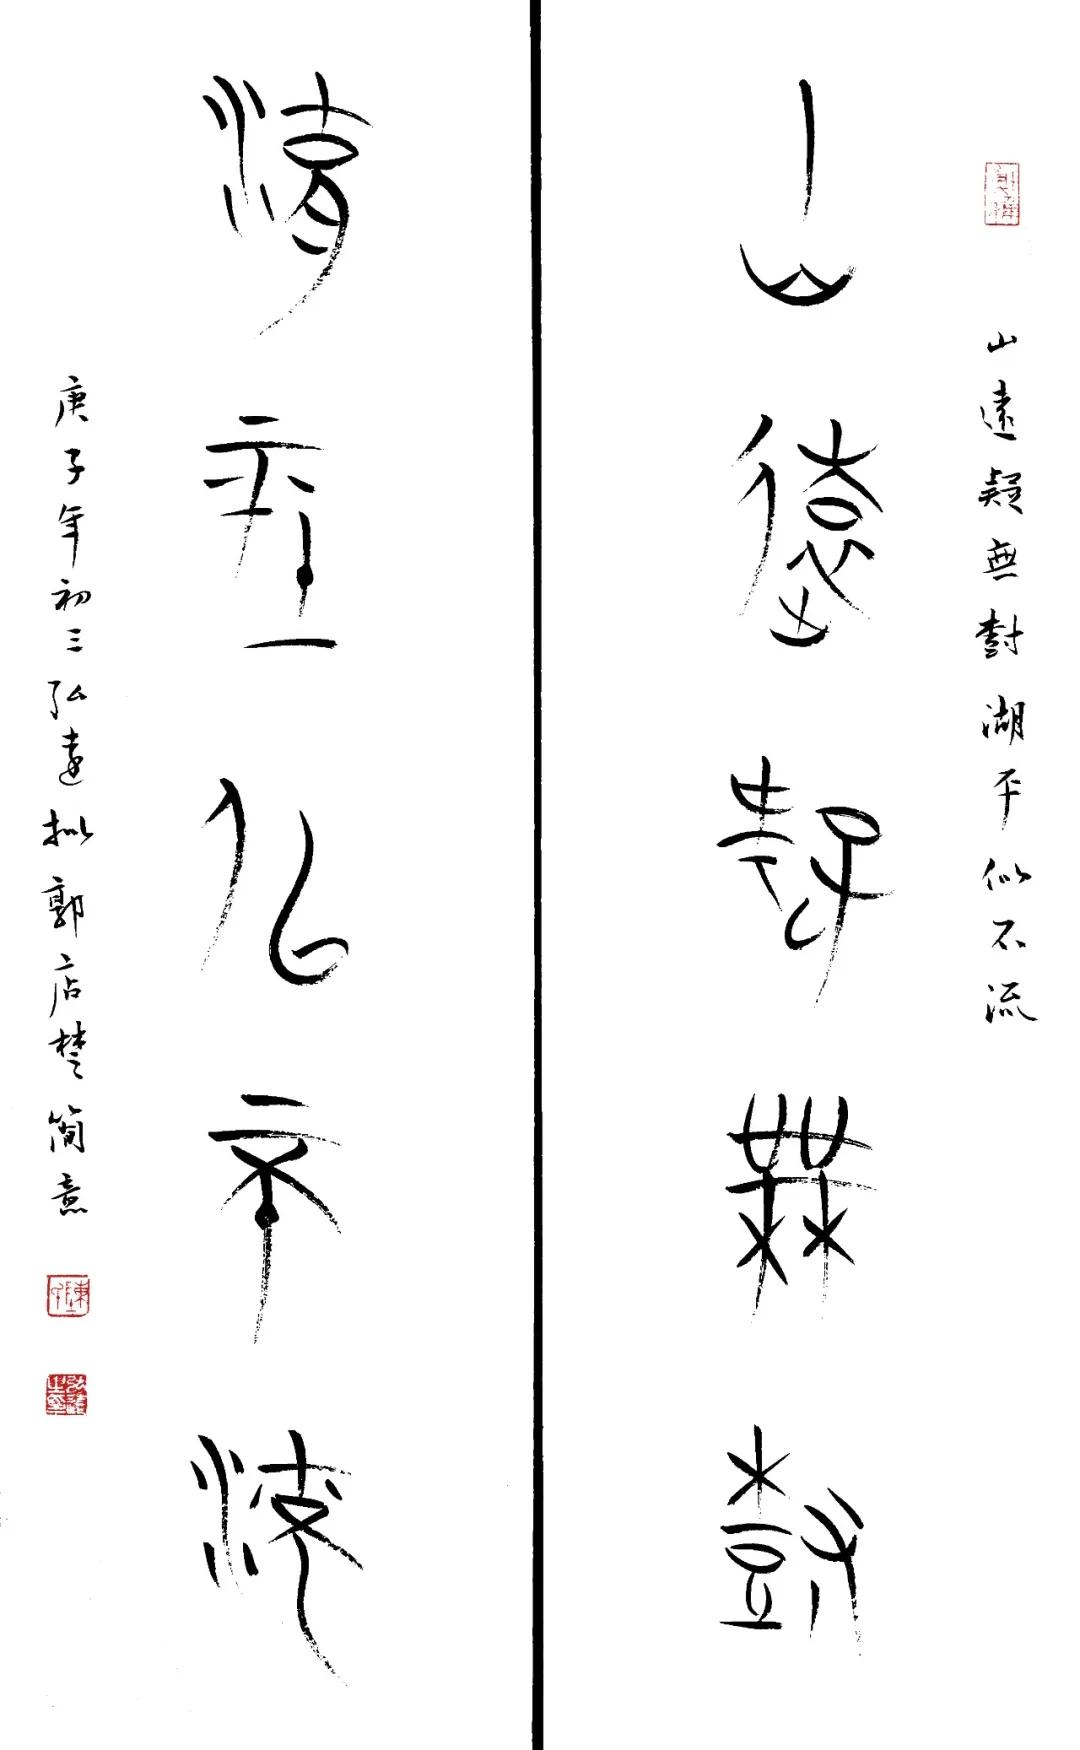 山遠疑無樹湖平似不流
山遠疑無樹
湖平似不流
庚子年初三弘達拟郭店楚簡意